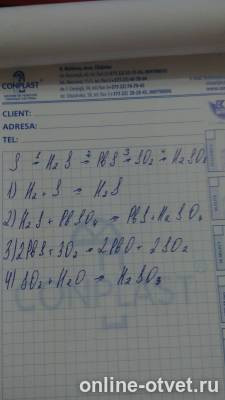 CONPLAST
CLIENT:
ADRESA:
TEL:
S →¹ H₂S →² PbS →³ SO₂ →⁴ H₂SO₃
1) H₂ + S = H₂S
2) H₂S + PbSO₄ = PbS + H₂SO₄
3) 2PbS + 3O₂ = 2PbO + 2SO₂
4) SO₂ + H₂O = H₂SO₃
CONPLAST
online-otvet.ru